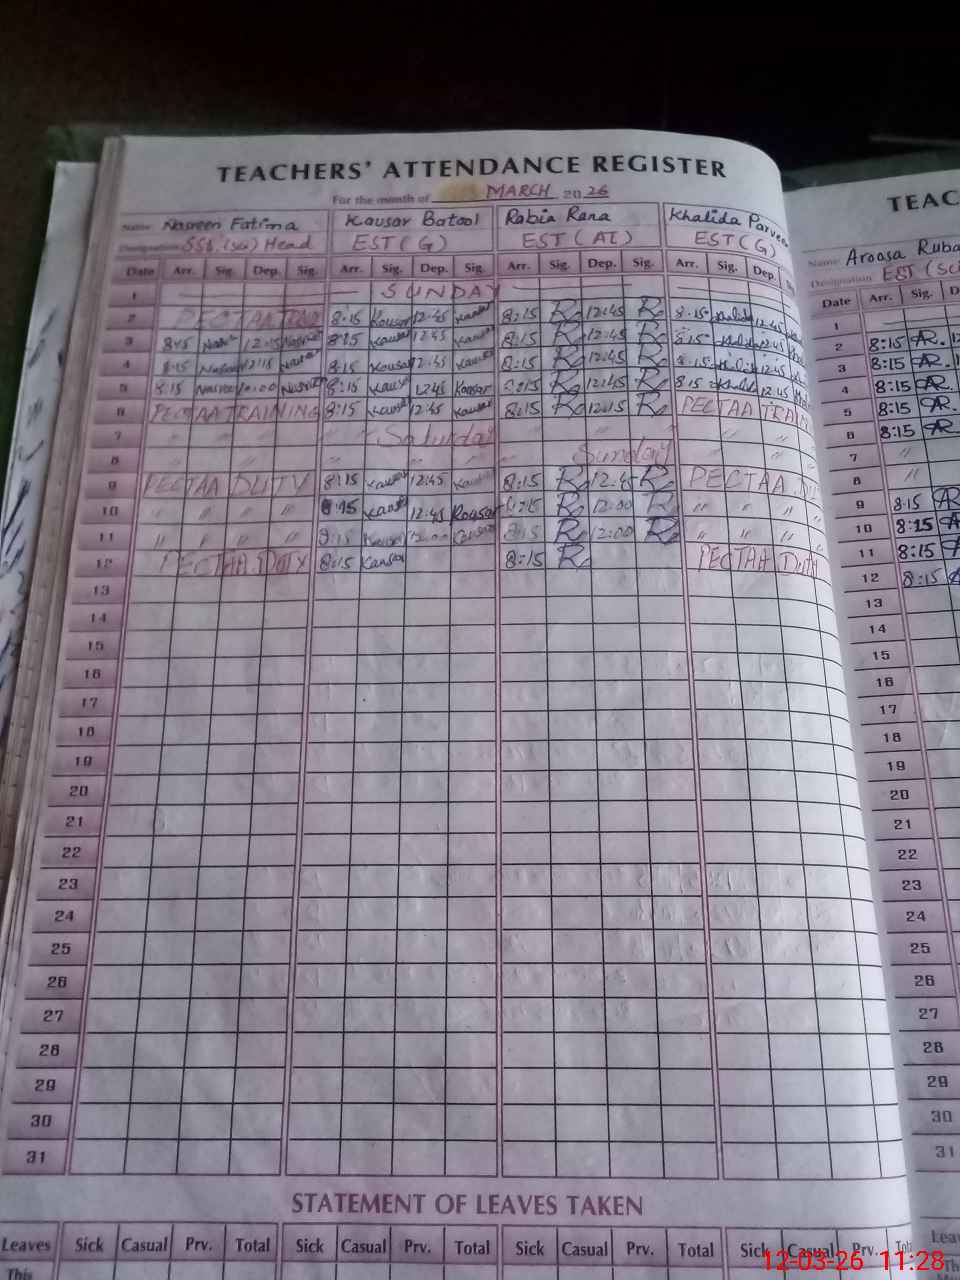 TEACHERS' ATTENDANCE REGISTER
For the month of MARCH 2026
Name Nasreen Fatima Kausar Batool Rabia Rana Khalida Parveen
Designation SSS. Head EST (G) EST (AT) EST (G)
Date Arr. Sig. Dep. Sig. Arr. Sig. Dep. Sig. Arr. Sig. Dep. Sig. Arr. Sig. Dep.
1 SUNDAY
2 PECTAA 8:15 Kausar 12:45 Kausar 8:15 R 12:45 R 8:15 Khalida 12:45
3 Nasr 12:15 8:15 Kausar 12:45 Kausar 8:15 R 12:45 R 8:15 Khalida 12:45
4 8:15 Nasreen 12:15 8:15 Kausar 12:45 Kausar 8:15 R 12:45 R 8:15 Khalida 12:45
5 8:15 Nasreen 10:00 Nasreen 8:15 Kausar 12:45 Kausar 8:15 R 12:45 R 8:15 Khalida 12:45
6 PECTAA TRAINING 8:15 Kausar 12:45 Kausar 8:15 R 12:15 R PECTAA TRAIN
7 " " " Saturday " "
8 " " " " " " Sunday " "
9 PECTAA DUTY 8:15 Kausar 12:45 Kausar 8:15 R 12:45 R PECTAA
10 " " " " 8:15 Kausar 12:45 Kousar 8:15 R 12:00 R " " " "
11 " " " " 8:15 Kausar 12:00 Kausar 8:15 R 12:00 R " " " "
12 PECTAA DUTY 8:15 Kausar 8:15 R PECTAA Duty
13
14
15
16
17
18
19
20
21
22
23
24
25
26
27
28
29
30
31
STATEMENT OF LEAVES TAKEN
Leaves Sick Casual Prv. Total Sick Casual Prv. Total Sick Casual Prv. Total Sick Casual Prv.
This
TEAC
Name: Aroosa Ruba
Designation: EST (Sci
Date Arr. Sig. D
1
2 8:15 AR. 1
3 8:15 AR.
4 8:15 AR.
5 8:15 AR.
6 8:15 AR.
7 "
8 "
9 8:15
10 8:15
11 8:15
12 8:15
13
14
15
16
17
18
19
20
21
22
23
24
25
26
27
28
29
30
31
12-03-26 11:28